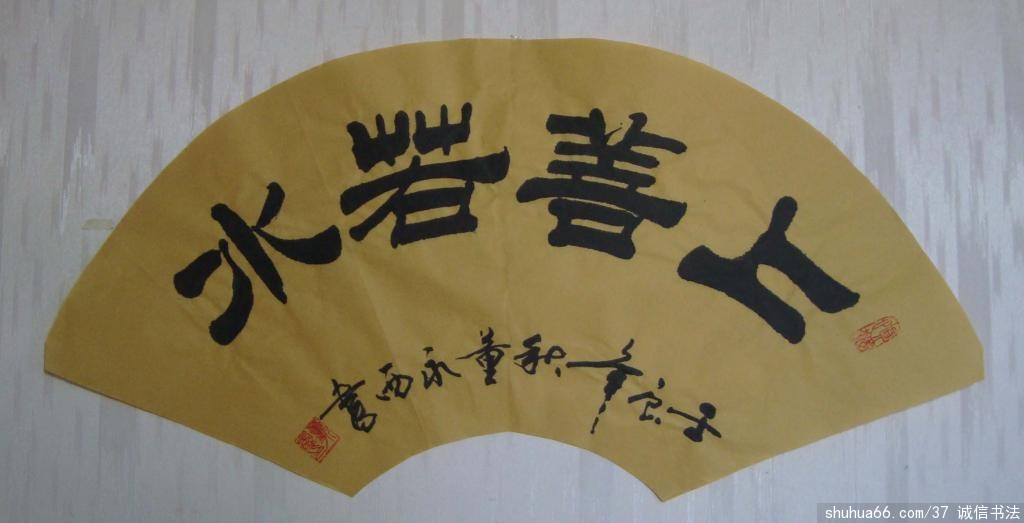 上善若水
壬辰年秋董永西書
shuhua66.com/37 诚信书法